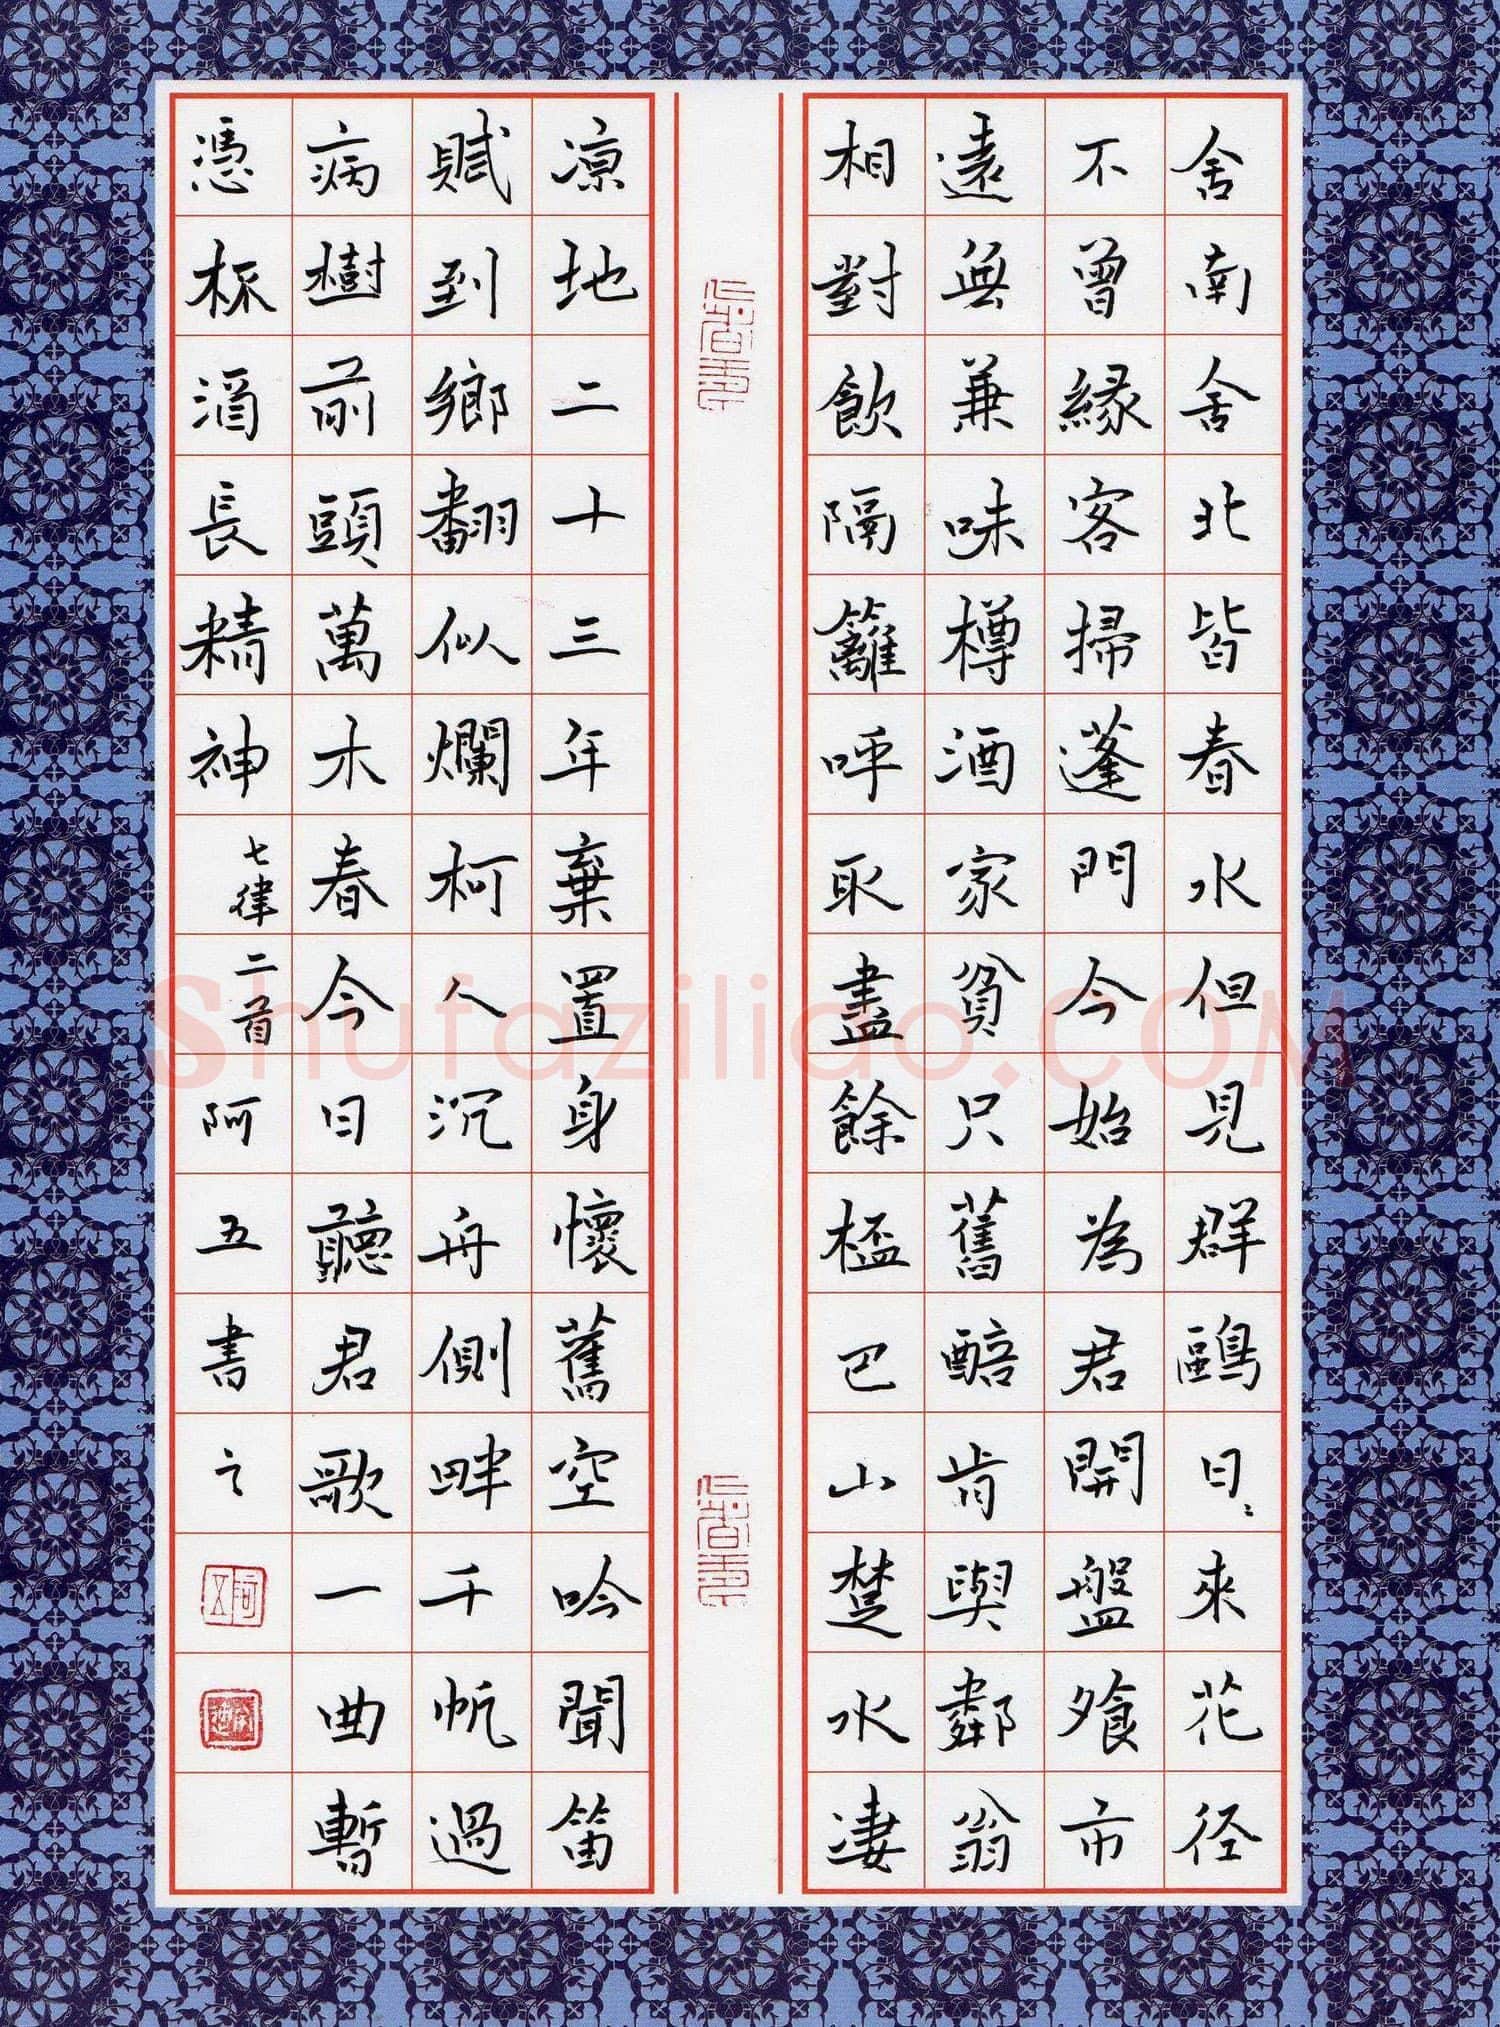 舍南舍北皆春水但見群鷗日〻來花径
不曾緣客掃蓬門今始為君開盤飧市
遠無兼味樽酒家貧只舊醅肯與鄰翁
相對飲隔籬呼取盡餘杯巴山楚水凄
凉地二十三年棄置身懷舊空吟聞笛
賦到鄉翻似爛柯人沉舟側畔千帆過
病樹前頭萬木春今日聽君歌一曲暫
憑杯酒長精神七律二首阿五書之
阿五
Shufaziliao.COM